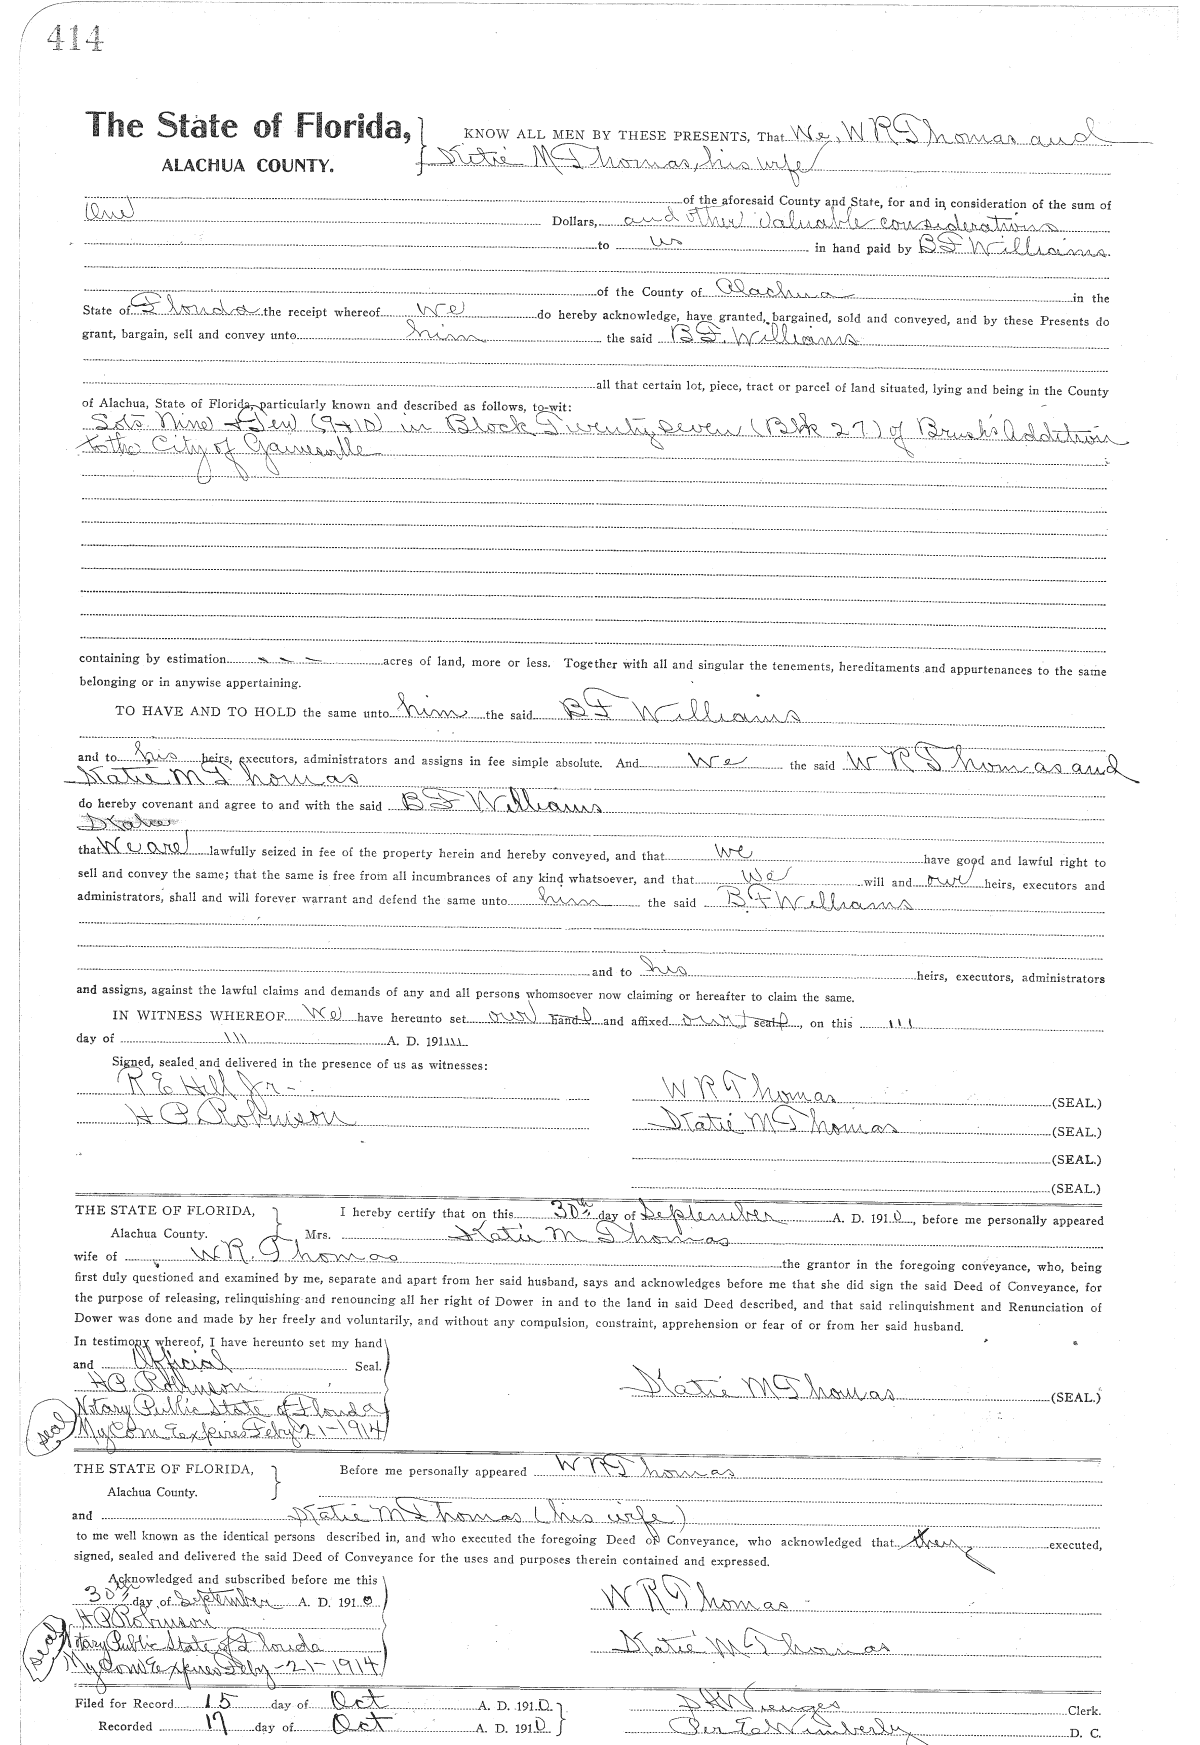 414
The State of Florida, KNOW ALL MEN BY THESE PRESENTS, That We, W R Thomas and
ALACHUA COUNTY. Katie M Thomas, his wife
of the aforesaid County and State, for and in consideration of the sum of
One Dollars, and other valuable considerations
to us in hand paid by B F Williams
of the County of Alachua in the
State of Florida the receipt whereof we do hereby acknowledge, have granted, bargained, sold and conveyed, and by these Presents do
grant, bargain, sell and convey unto him the said B F. Williams
all that certain lot, piece, tract or parcel of land situated, lying and being in the County
of Alachua, State of Florida, particularly known and described as follows, to-wit:
Lots Nine & Ten (9+10) in Block Twenty seven (Blk 27) of Brush's Addition
to the City of Gainesville
containing by estimation - - - acres of land, more or less. Together with all and singular the tenements, hereditaments and appurtenances to the same
belonging or in anywise appertaining.
TO HAVE AND TO HOLD the same unto him the said B F Williams
and to his heirs, executors, administrators and assigns in fee simple absolute. And We the said W R Thomas and
Katie M Thomas
do hereby covenant and agree to and with the said B F Williams
Katie
that We are lawfully seized in fee of the property herein and hereby conveyed, and that we have good and lawful right to
sell and convey the same; that the same is free from all incumbrances of any kind whatsoever, and that We will and our heirs, executors and
administrators, shall and will forever warrant and defend the same unto him the said B F Williams
and to his heirs, executors, administrators
and assigns, against the lawful claims and demands of any and all persons whomsoever now claiming or hereafter to claim the same.
IN WITNESS WHEREOF We have hereunto set our hand and affixed our seal, on this 111
day of 111 A. D. 191111
Signed, sealed and delivered in the presence of us as witnesses:
R E Hill Jr - W R Thomas (SEAL.)
H P Robinson Katie M Thomas (SEAL.)
(SEAL.)
(SEAL.)
THE STATE OF FLORIDA, I hereby certify that on this 30th day of September A. D. 1910, before me personally appeared
Alachua County. Mrs. Katie M Thomas
wife of W R. Thomas the grantor in the foregoing conveyance, who, being
first duly questioned and examined by me, separate and apart from her said husband, says and acknowledges before me that she did sign the said Deed of Conveyance, for
the purpose of releasing, relinquishing and renouncing all her right of Dower in and to the land in said Deed described, and that said relinquishment and Renunciation of
Dower was done and made by her freely and voluntarily, and without any compulsion, constraint, apprehension or fear of or from her said husband.
In testimony whereof, I have hereunto set my hand
and Official Seal.
H P. Robinson Katie M Thomas (SEAL.)
Notary Public State of Florida
seal My Com Expires Feby 21-1914
THE STATE OF FLORIDA, Before me personally appeared W R Thomas
Alachua County.
and Katie M Thomas (his wife)
to me well known as the identical persons described in, and who executed the foregoing Deed of Conveyance, who acknowledged that they executed,
signed, sealed and delivered the said Deed of Conveyance for the uses and purposes therein contained and expressed.
Acknowledged and subscribed before me this
30th day of September A. D. 1910 W R Thomas
H P Robinson
seal Notary Public State of Florida Katie M Thomas
My Com Expires Feby - 21 - 1914
Filed for Record 15 day of Oct A. D. 1910. S H Wienges Clerk.
Recorded 17 day of Oct A. D. 1910 Per E Wimberly D. C.